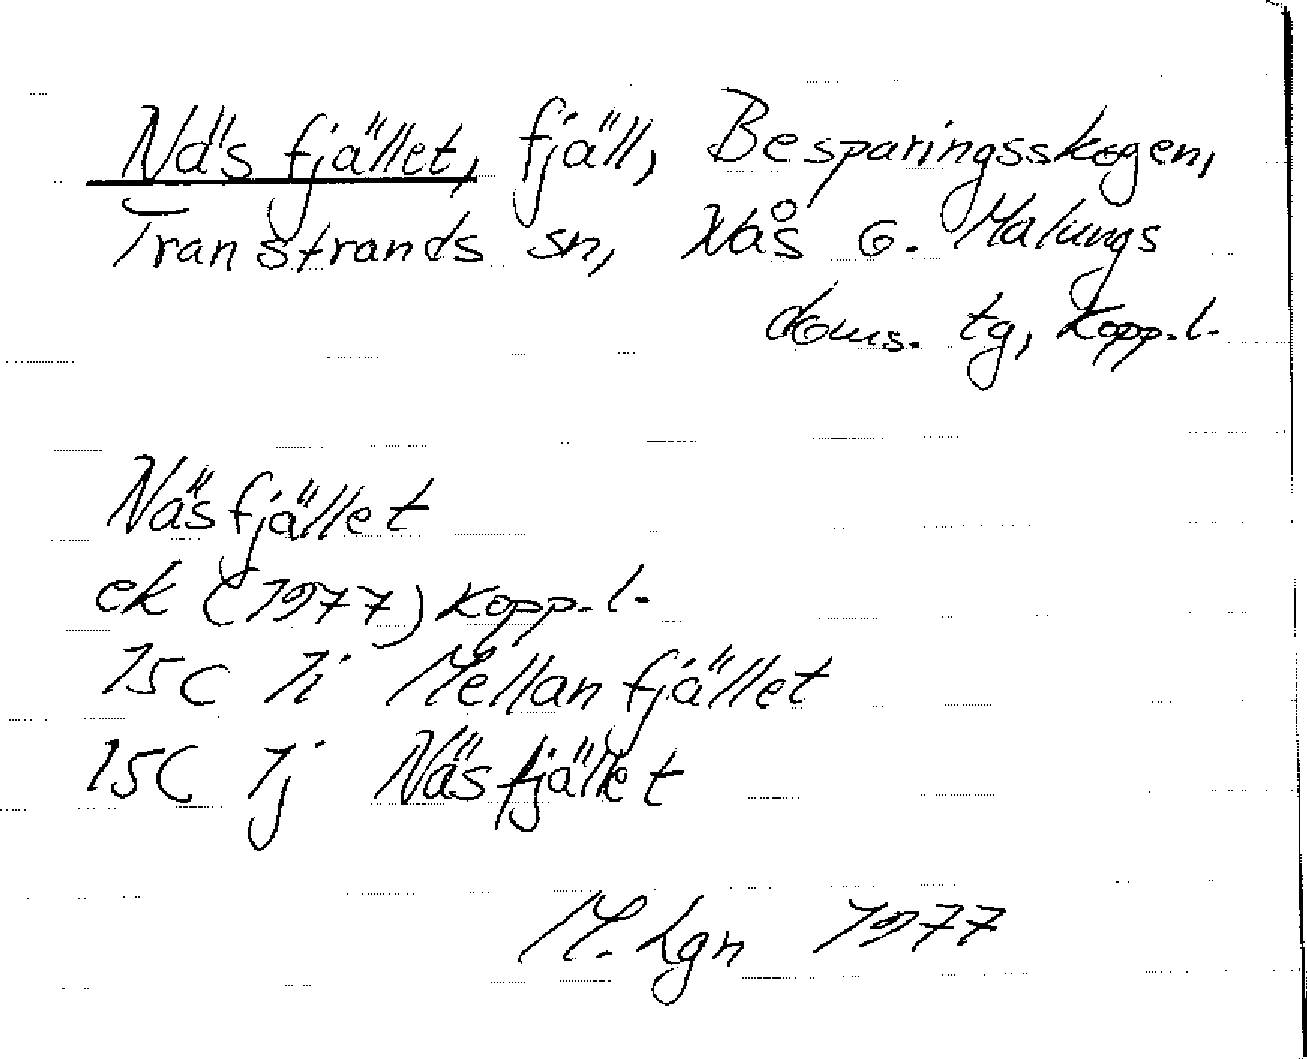 Näsfjället, fjäll, Besparingsskogen,
Transtrands sn, Nås o. Malungs
doms. tg, Kopp. l.
Näsfjället
ek (1977) Kopp. l.
15C 1i Mellanfjället
15C 1j Näsfjället
M. Lgn 1977